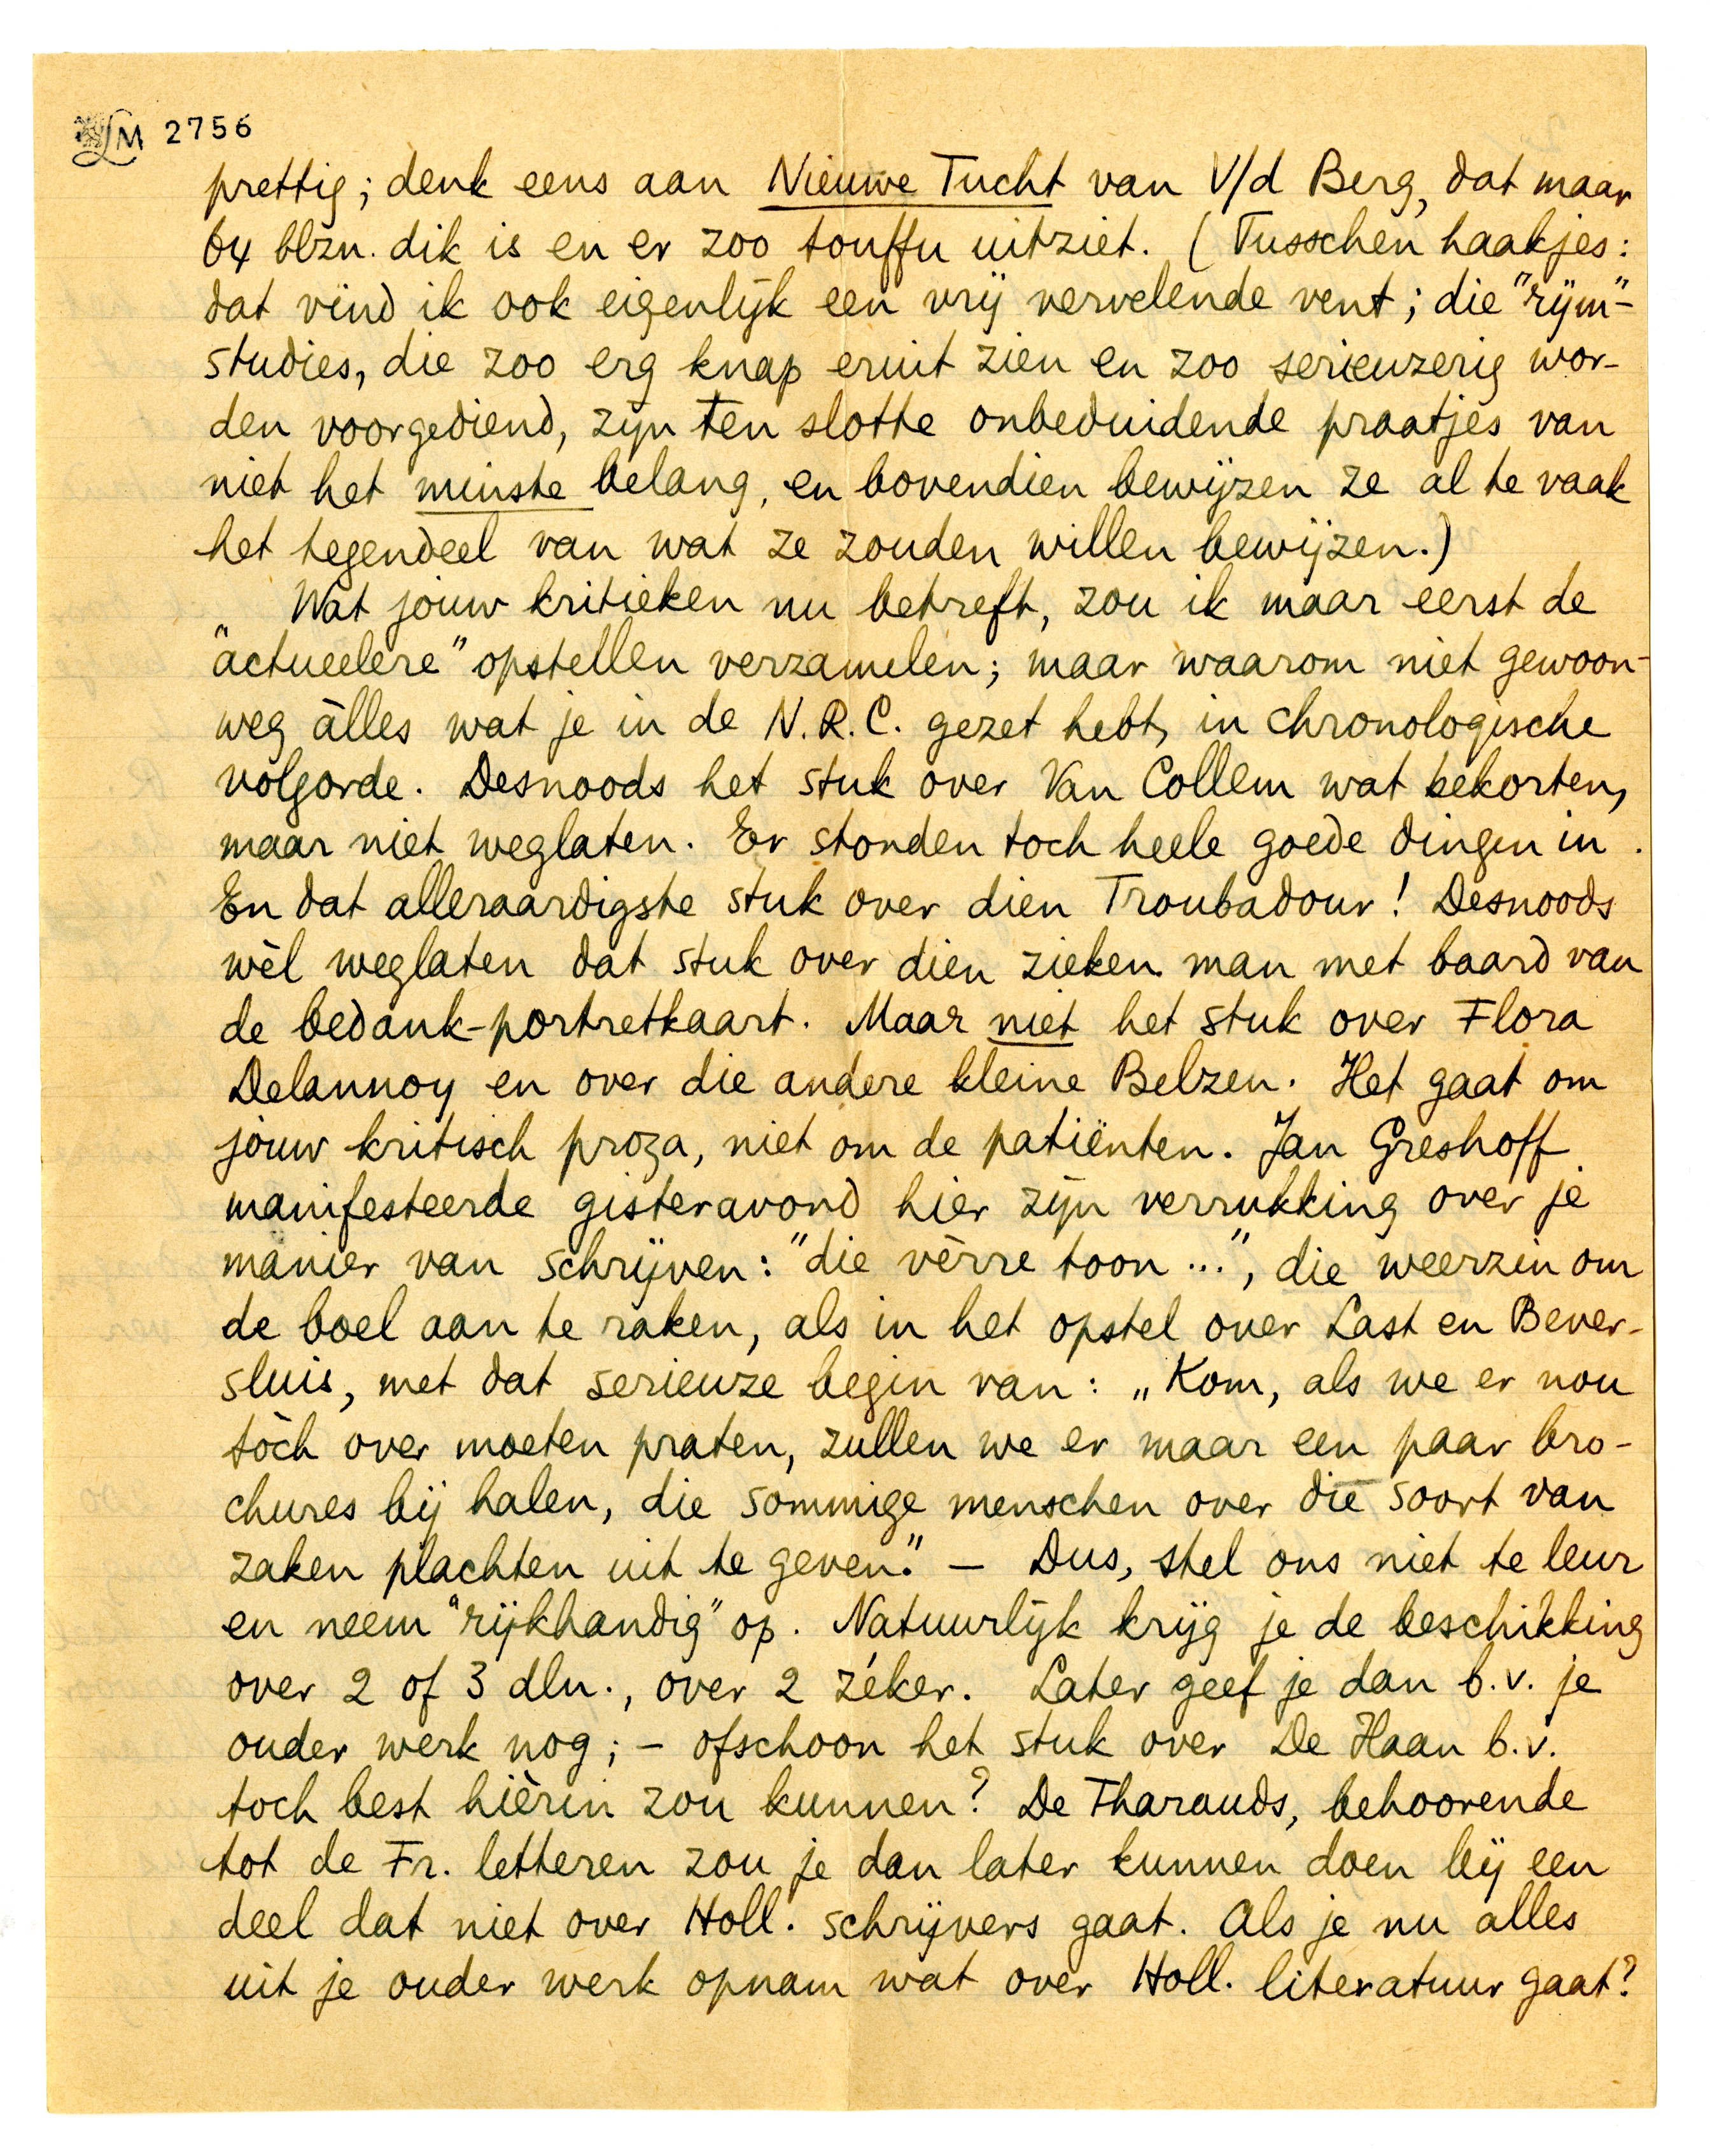 LM 2756
prettig; denk eens aan Nieuwe Tucht van V/d Berg, dat maar
64 blzn. dik is en er zoo touffu uitziet. (Tusschen haakjes:
dat vind ik ook eigenlijk een vrij vervelende vent; die "rijm"-
studies, die zoo erg knap eruit zien en zoo serieuzerig wor-
den voorgediend, zijn ten slotte onbeduidende praatjes van
niet het minste belang, en bovendien bewijzen ze al te vaak
het tegendeel van wat ze zouden willen bewijzen.)
Wat jouw kritieken nu betreft, zou ik maar eerst de
"actueelere" opstellen verzamelen; maar waarom niet gewoon-
weg àlles wat je in de N.R.C. gezet hebt, in chronologische
volgorde. Desnoods het stuk over Van Collem wat bekorten,
maar niet weglaten. Er stonden toch heele goede dingen in.
En dat alleraardigste stuk over dien Troubadour! Desnoods
wèl weglaten dat stuk over dien zieken man met baard van
de bedank-portretkaart. Maar niet het stuk over Flora
Delannoy en over die andere kleine Belzen. Het gaat om
jouw kritisch proza, niet om de patiënten. Jan Greshoff
manifesteerde gisteravond hier zijn verrukking over je
manier van schrijven: "die vèrre toon ...", die weerzin om
de boel aan te raken, als in het opstel over Last en Bever-
sluis, met dat serieuze begin van: „Kom, als we er nou
tòch over moeten praten, zullen we er maar een paar bro-
chures bij halen, die sommige menschen over die soort van
zaken plachten uit te geven." — Dus, stel ons niet te leur
en neem "rijkhandig" op. Natuurlijk krijg je de beschikking
over 2 of 3 dln., over 2 zéker. Later geef je dan b.v. je
ouder werk nog; – ofschoon het stuk over De Haan b.v.
toch best hièrin zou kunnen? De Tharauds, behoorende
tot de Fr. letteren zou je dan later kunnen doen bij een
deel dat niet over Holl. schrijvers gaat. Als je nu alles
uit je ouder werk opnam wat over Holl. literatuur gaat?